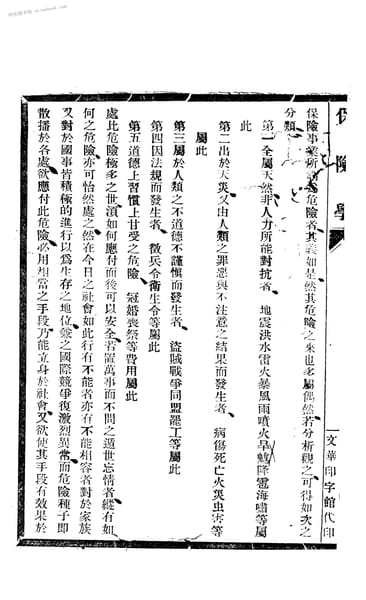 保險學
保險事業所謂危險者其義如是然其危險之來也多屬偶然若分析觀之可得如次之
分類
第一全屬天然非人力所能對抗者 地震洪水雷火暴風雨噴火旱蝗降雹海嘯等屬
此
第二出於天災又由人類之罪惡與不注意之結果而發生者 病傷死亡火災虫害等
屬此
第三屬於人類之不道德不謹愼而發生者 盜賊戰爭同盟罷工等屬此
第四因法規而發生者 徵兵令衛生令等屬此
第五道德上習慣上甘受之危險 冠婚喪祭等費用屬此
處此危險極多之世須如何應付而後可以安全若置萬事而不問之遁世忘情者縱有如
何之危險亦可怡然處之然在今日之社會如此行有不能者亦有不能相容者對於家族
又對於國事皆積極的進行以爲生存之地位餒之國際競爭復激烈異常而危險種子即
散播於各處欲應付此危險必用相當之手段乃能立身於社會又欲使其手段有效果於
文華印字館代印